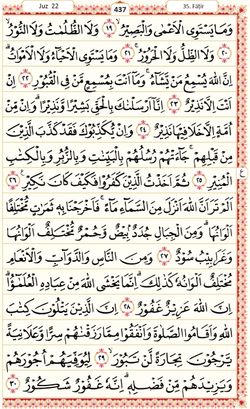 Juz 22
437
35. Fatir
وَمَا يَسْتَوِى الْاَعْمٰى وَالْبَصِيْرُ ﴿۱۹﴾ وَلَا الظُّلُمٰتُ وَلَا النُّوْرُ
﴿۲۰﴾ وَلَا الظِّلُّ وَلَا الْحَرُوْرُ ﴿۲۱﴾ وَمَا يَسْتَوِى الْاَحْيَآءُ وَلَا الْاَمْوَاتُ
اِنَّ اللّٰهَ يُسْمِعُ مَنْ يَّشَآءُ وَمَآ اَنْتَ بِمُسْمِعٍ مَّنْ فِى الْقُبُوْرِ ﴿۲۲﴾ اِنْ
اَنْتَ اِلَّا نَذِيْرٌ ﴿۲۳﴾ اِنَّآ اَرْسَلْنٰكَ بِالْحَقِّ بَشِيْرًا وَّنَذِيْرًا وَاِنْ مِّنْ
اُمَّةٍ اِلَّا خَلَا فِيْهَا نَذِيْرٌ ﴿۲۴﴾ وَاِنْ يُّكَذِّبُوْكَ فَقَدْ كَذَّبَ الَّذِيْنَ
مِنْ قَبْلِهِمْ جَآءَتْهُمْ رُسُلُهُمْ بِالْبَيِّنٰتِ وَبِالزُّبُرِ وَبِالْكِتٰبِ
الْمُنِيْرِ ﴿۲۵﴾ ثُمَّ اَخَذْتُ الَّذِيْنَ كَفَرُوْا فَكَيْفَ كَانَ نَكِيْرِ ﴿۲۶﴾
اَلَمْ تَرَ اَنَّ اللّٰهَ اَنْزَلَ مِنَ السَّمَآءِ مَآءً فَاَخْرَجْنَا بِهٖ ثَمَرٰتٍ مُّخْتَلِفًا
اَلْوَانُهَا وَمِنَ الْجِبَالِ جُدَدٌۢ بِيْضٌ وَّحُمْرٌ مُّخْتَلِفٌ اَلْوَانُهَا
وَغَرَابِيْبُ سُوْدٌ ﴿۲۷﴾ وَمِنَ النَّاسِ وَالدَّوَآبِّ وَالْاَنْعَامِ
مُخْتَلِفٌ اَلْوَانُهٗ كَذٰلِكَ اِنَّمَا يَخْشَى اللّٰهَ مِنْ عِبَادِهِ الْعُلَمٰٓؤُا
اِنَّ اللّٰهَ عَزِيْزٌ غَفُوْرٌ ﴿۲۸﴾ اِنَّ الَّذِيْنَ يَتْلُوْنَ كِتٰبَ
اللّٰهِ وَاَقَامُوا الصَّلٰوةَ وَاَنْفَقُوْا مِمَّا رَزَقْنٰهُمْ سِرًّا وَّعَلَانِيَةً
يَّرْجُوْنَ تِجَارَةً لَّنْ تَبُوْرَ ﴿۲۹﴾ لِيُوَفِّيَهُمْ اُجُوْرَهُمْ
وَيَزِيْدَهُمْ مِّنْ فَضْلِهٖ اِنَّهٗ غَفُوْرٌ شَكُوْرٌ ﴿۳۰﴾